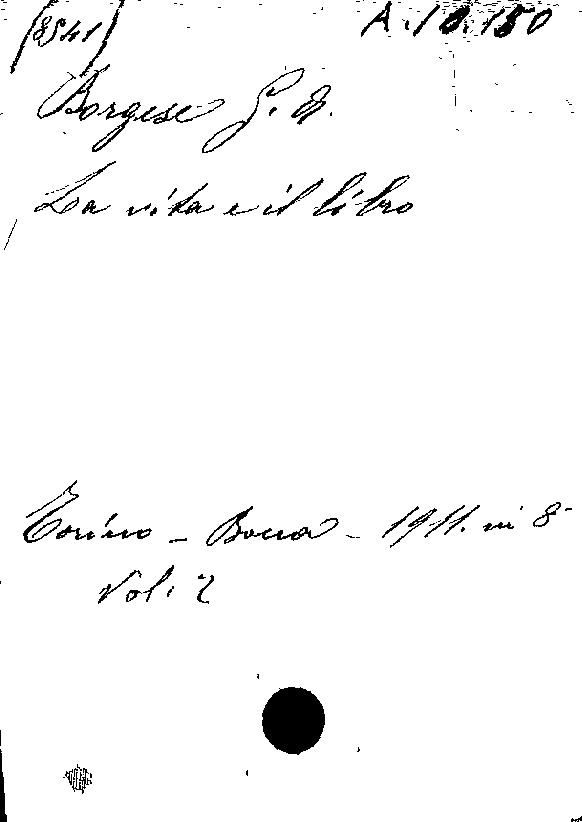 (8541)
A. 10. 150
Borgese G. A.
La vita e il libro
Torino – Bocca – 1911. in 8°
Vol. 2